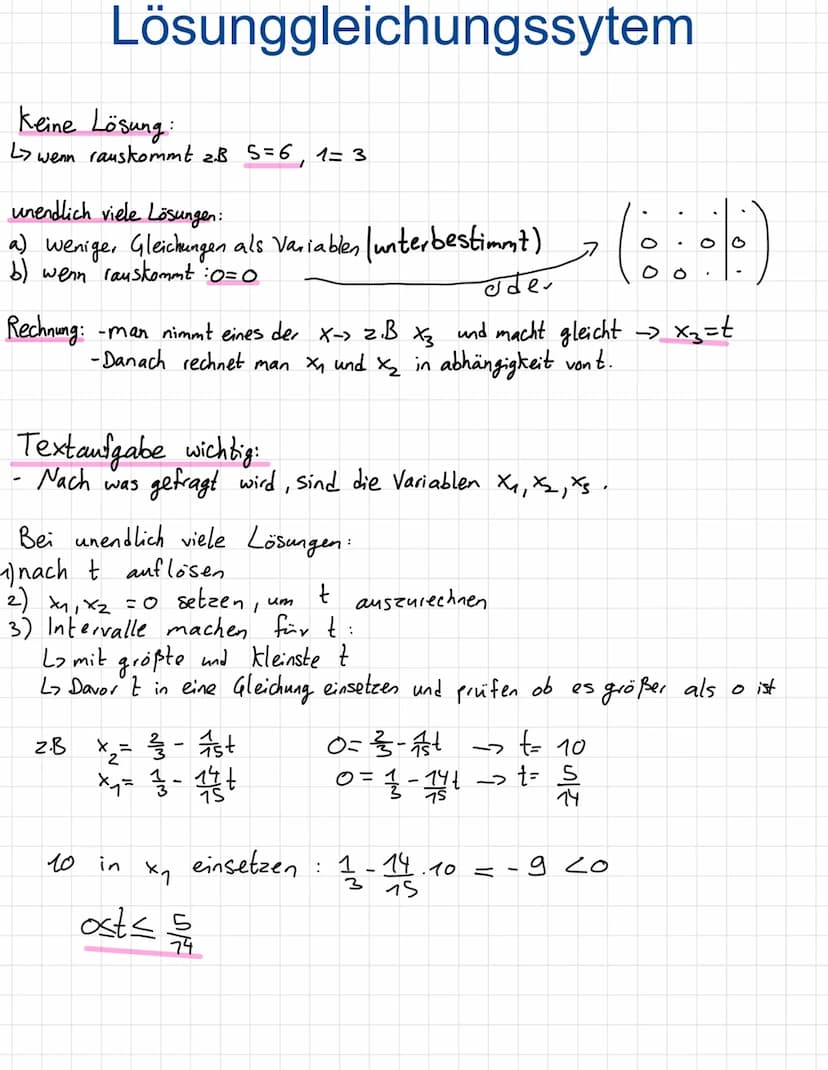 Lösunggleichungssytem
Keine Lösung:
↳ wenn rauskommt z.B 5=6, 1=3
unendlich viele Lösungen:
a) weniger Gleichungen als Variablen (unterbestimmt)
b) wenn rauskommt : 0=0
oder
( . . . | .
0 . 0 | 0
0 0 . | . )
Rechnung: - man nimmt eines der x → z.B x₃ und macht gleicht → x₃=t
- Danach rechnet man x₁ und x₂ in abhängigkeit von t.
Textaufgabe wichtig:
- Nach was gefragt wird, sind die Variablen x₁, x₂, x₃.
Bei unendlich viele Lösungen:
1) nach t auflösen
2) x₁, x₂ = 0 setzen, um t auszurechnen
3) Intervalle machen für t:
↳ mit größte und kleinste t
↳ Davor t in eine Gleichung einsetzen und prüfen ob es größer als 0 ist
z.B x₂ = 2/3 - 1/15 t 0 = 2/3 - 1/15 t → t = 10
x₁ = 1/3 - 14/15 t 0 = 1/3 - 14/15 t → t = 5/14
10 in x₁ einsetzen : 1/3 - 14/15 · 10 = - 9 < 0
0≤t≤ 5/14